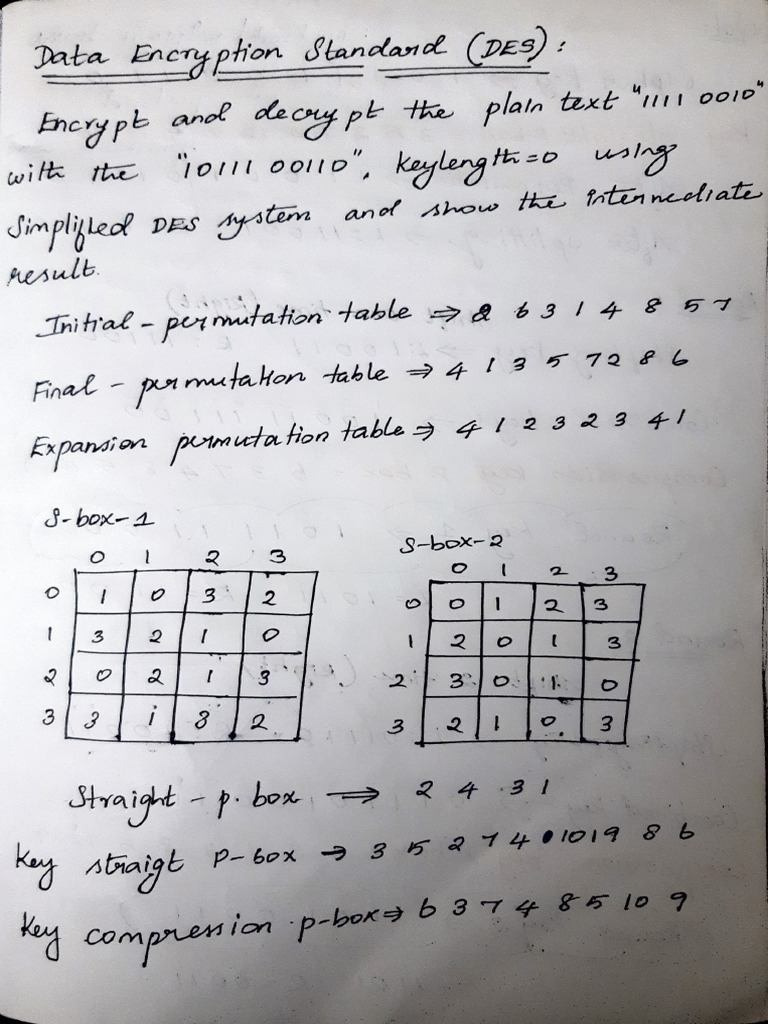 Data Encryption Standard (DES) :
Encrypt and decrypt the plain text "1111 0010"
with the "10111 00110", keylength=0 using
Simplified DES system and show the intermediate
result.
Initial - permutation table ⇒ 2 6 3 1 4 8 5 7
Final - permutation table ⇒ 4 1 3 5 7 2 8 6
Expansion permutation table ⇒ 4 1 2 3 2 3 4 1
S-box-1
0 1 2 3
0 1 0 3 2
1 3 2 1 0
2 0 2 1 3
3 3 1 3 2
S-box-2
0 1 2 3
0 0 1 2 3
1 2 0 1 3
2 3 0 1 0
3 2 1 0 3
Straight - p. box ⇒ 2 4 3 1
Key straigt P-box → 3 5 2 7 4 10 1 9 8 6
Key compression p-box ⇒ 6 3 7 4 8 5 10 9